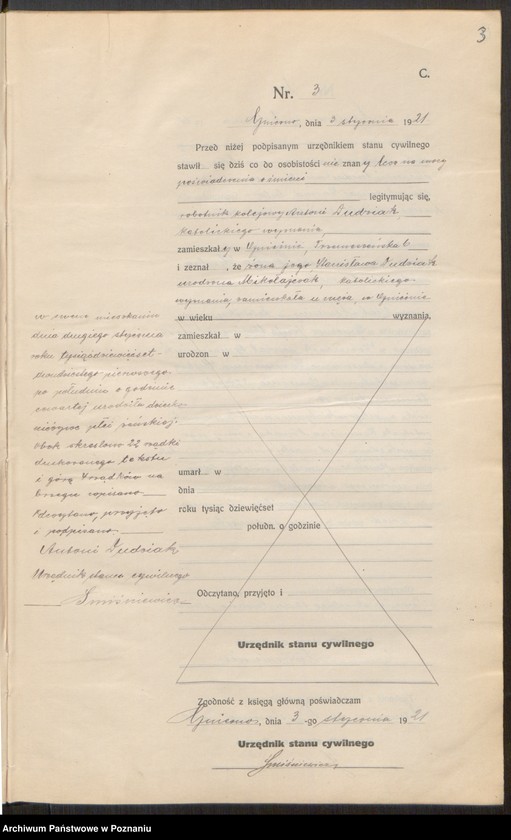 3
C.
Nr. 3
Gniezno, dnia 3 stycznia 1921
Przed niżej podpisanym urzędnikiem stanu cywilnego
stawił się dziś co do osobistości nie znany lecz na mocy
poświadczenia o śmierci
legitymując się,
robotnik kolejowy Antoni Dudziak
katolickiego wyznania,
zamieszkały w Gnieźnie,
i zeznał, że żona jego Stanisława Dudziak
urodzona Mikołajczak, katolickiego
wyznania, zamieszkała u męża, w Gnieźnie
w wieku wyznania,
zamieszkał w
urodzon w
w swem mieszkaniu
dnia drugiego stycznia
roku tysiącdziewięćset
dwudziestego pierwszego
po południu o godzinie
czwartej urodziła dziecko
nieżywe płci żeńskiej.
Obok skreślono 22 wądki
drukowanego tekstu
i górą wądków na
brzegu wpisano
Odczytano, przyjęto
i podpisano
Antoni Dudziak
Urzędnik stanu cywilnego
umarł w
dnia
roku tysiąc dziewięćset
połudn. o godzinie
Odczytano, przyjęto i
Urzędnik stanu cywilnego
Zgodność z księgą główną poświadczam
Gniezno, dnia 3-go stycznia 1921
Urzędnik stanu cywilnego
Archiwum Państwowe w Poznaniu